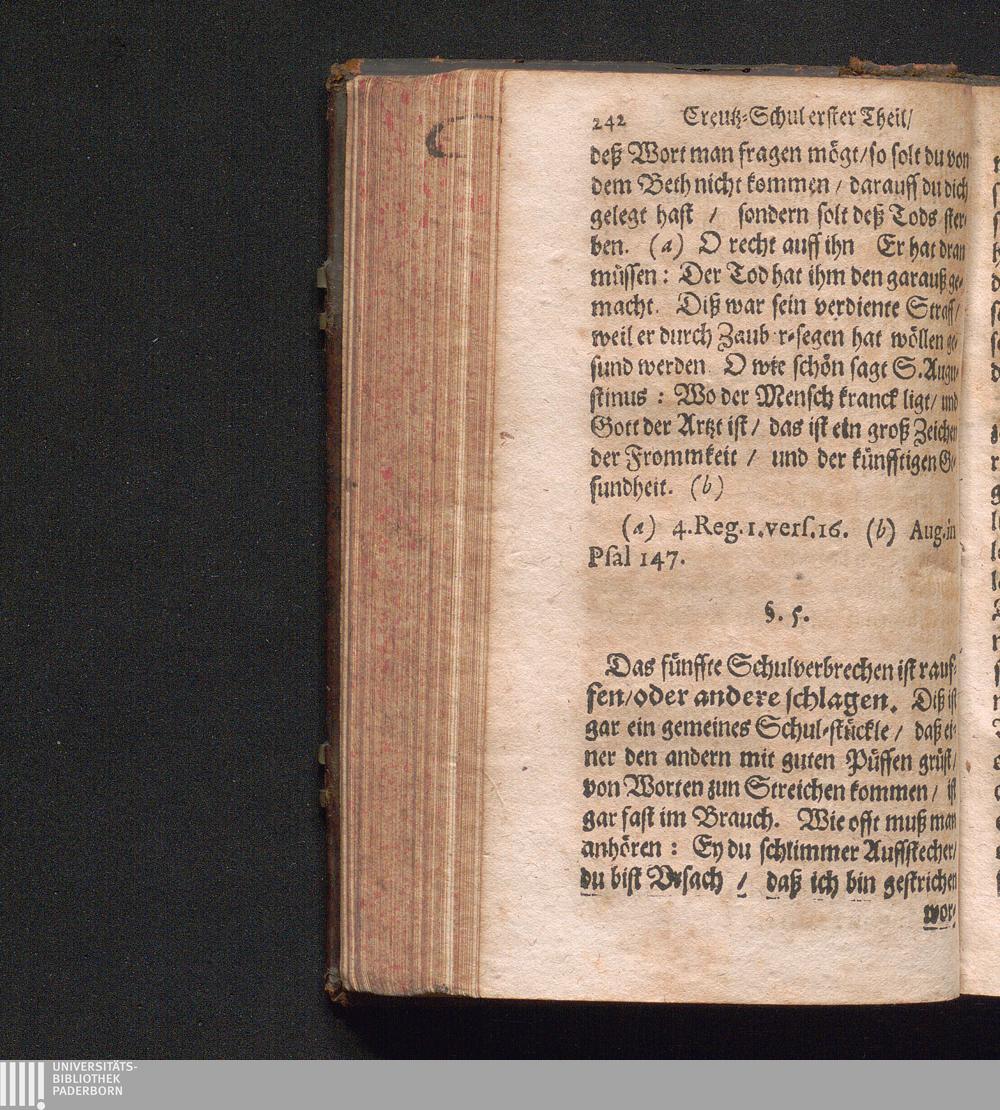 242 Creutz-Schul erster Theil/
deß Wort man fragen mögt/ so solt du von
dem Beth nicht kommen / darauff du dich
gelegt hast / sondern solt deß Tods ster-
ben. (a) O recht auff ihn Er hat dran
müssen : Der Tod hat ihm den garauß ge-
macht. Diß war sein verdiente Straff/
weil er durch Zaub r-segen hat wöllen ge-
sund werden O wie schön sagt S. Augu-
stinus : Wo der Mensch kranck ligt/ und
Gott der Artzt ist / das ist ein groß Zeichen
der Frommkeit / und der künfftigen Ge-
sundheit. (b)
(a) 4. Reg. 1. vers. 16. (b) Aug. in
Psal 147.
§. 5.
Das fünffte Schulverbrechen ist rauf-
fen/ oder andere schlagen. Diß ist
gar ein gemeines Schul-stückle / daß ei-
ner den andern mit guten Püffen grüst/
von Worten zun Streichen kommen / ist
gar fast im Brauch. Wie offt muß man
anhören : Ey du schlimmer Auffstecher/
du bist Vrsach / daß ich bin gestrichen
wor-
UNIVERSITÄTS-
BIBLIOTHEK
PADERBORN